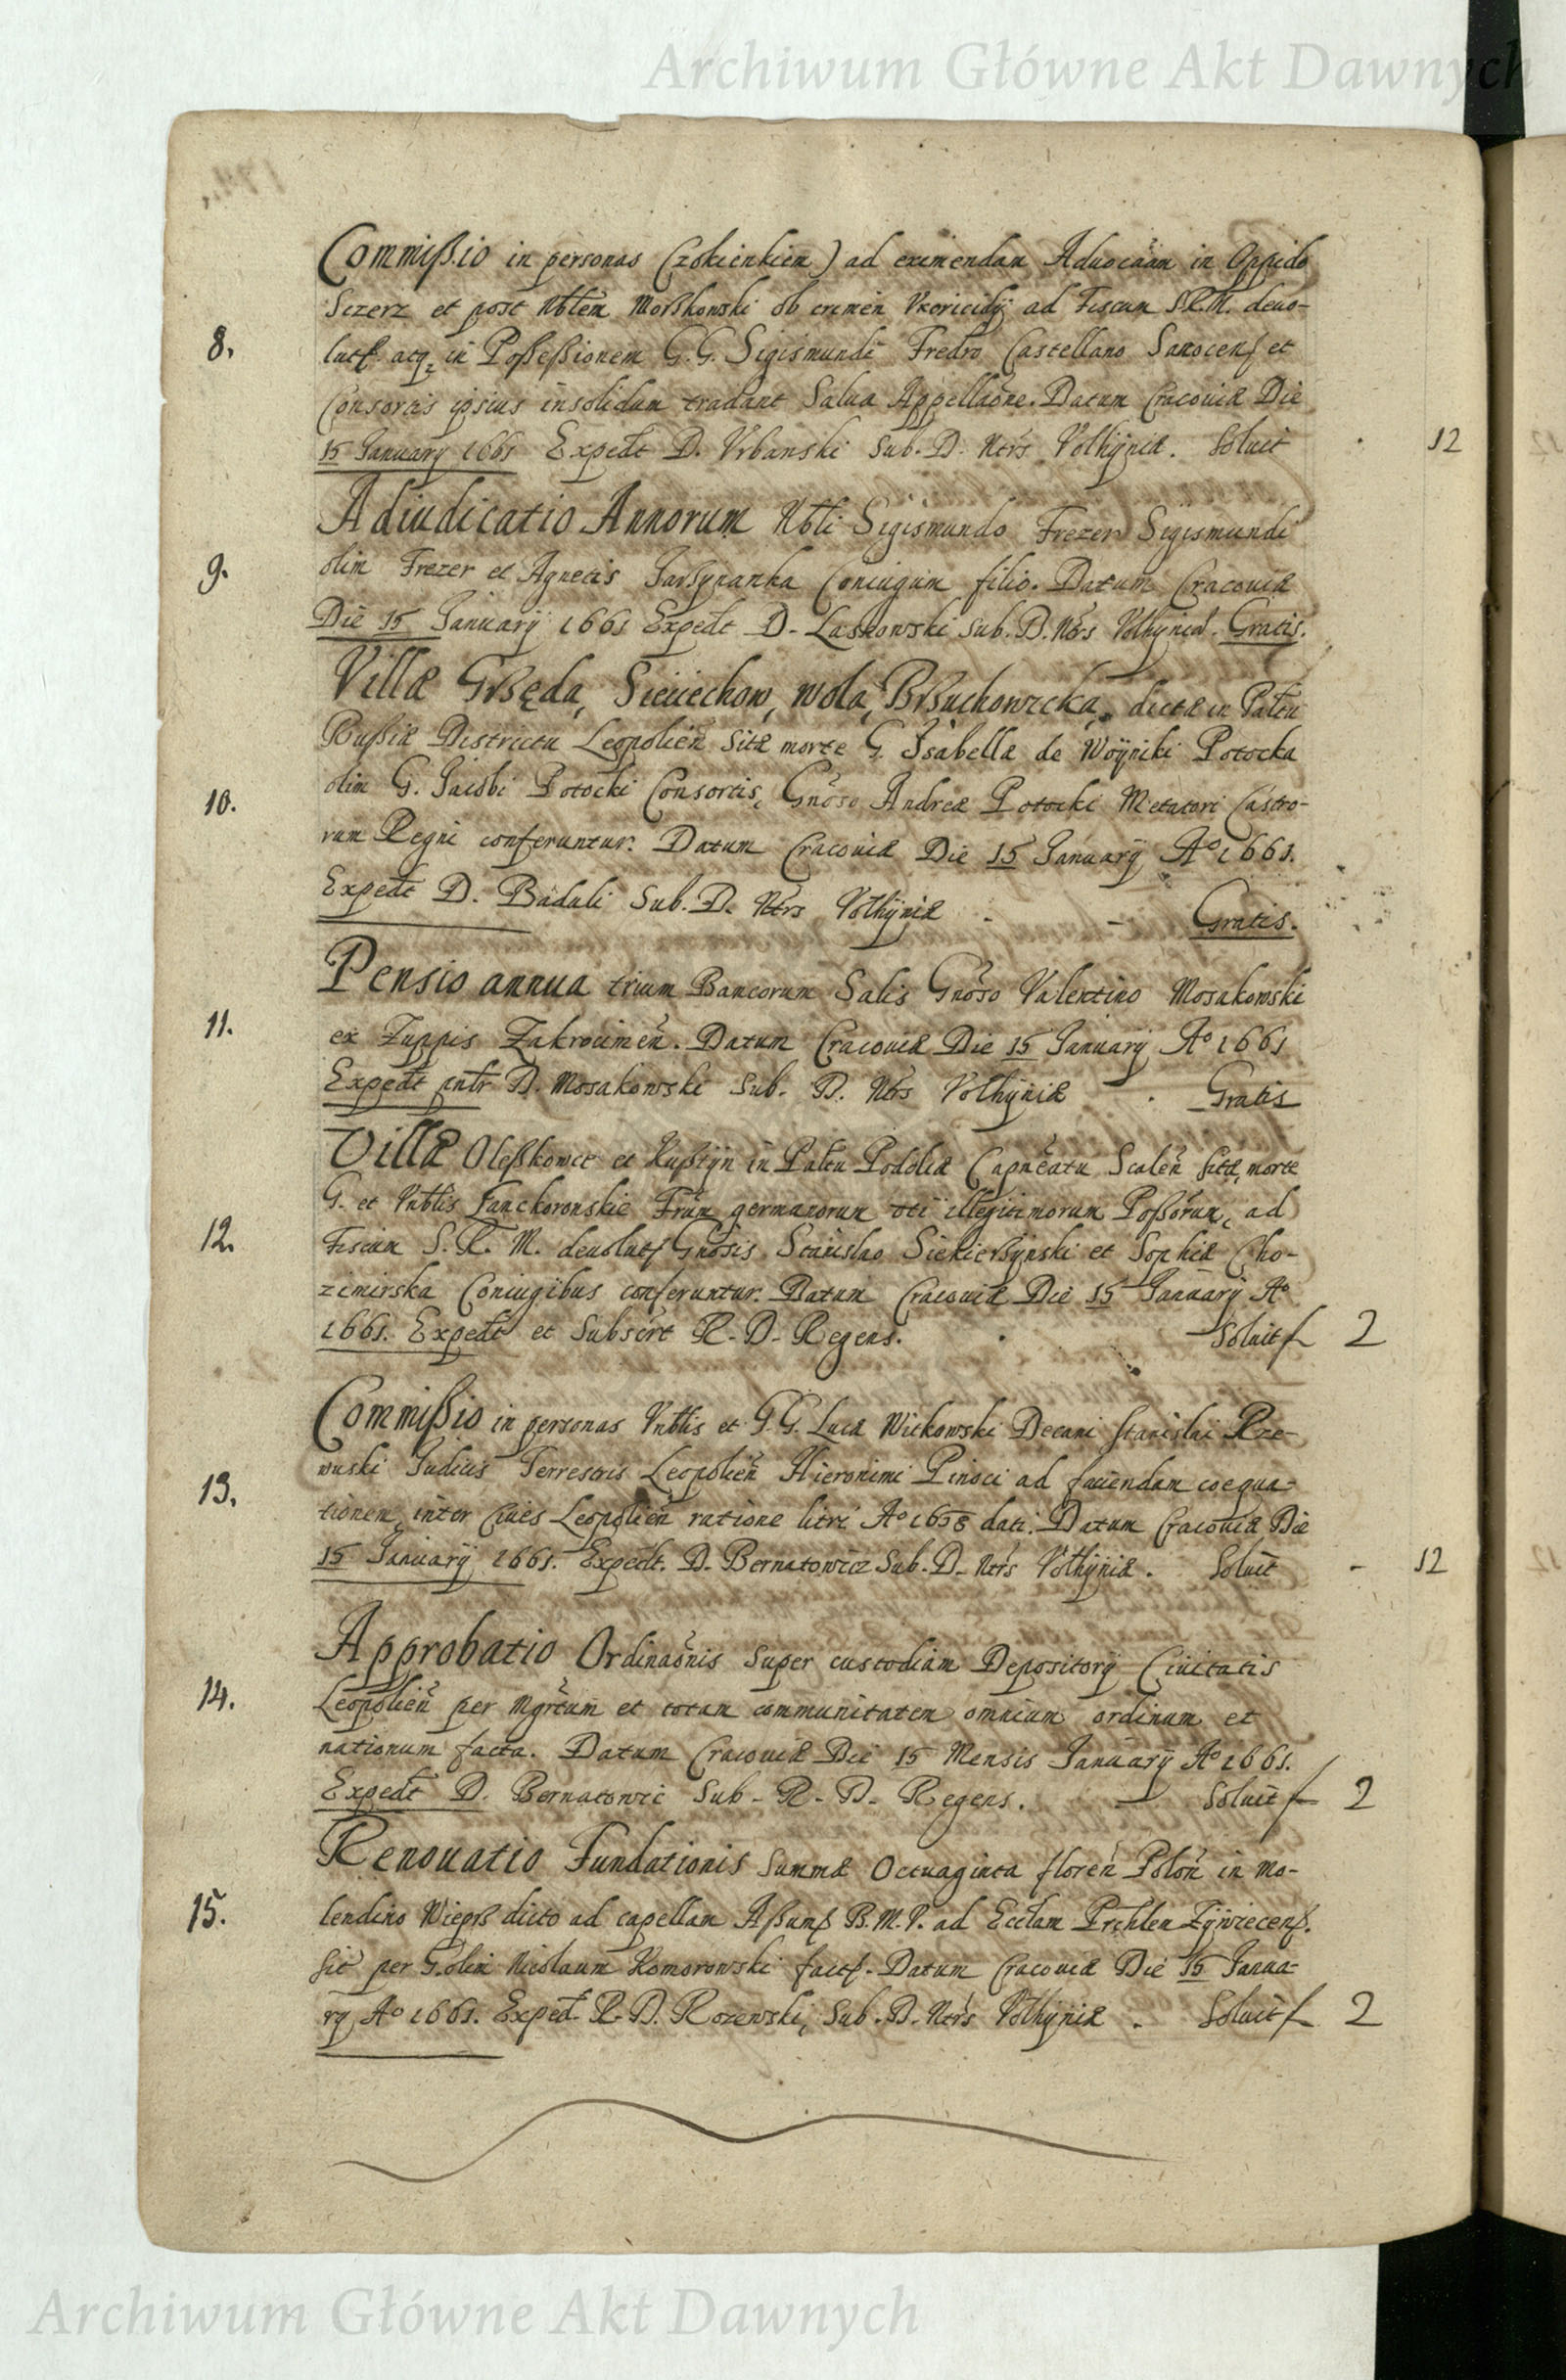 Archiwum Główne Akt Dawnych
Commißio in personas (zokienkiem) ad eximendam Aduocãam in Oppido
Sczerz et post Nblem Morßkowski ob crimen Vxoricidÿ ad Fiscum S.R.M. deuo-
8. lutƒ. atqz in Poßeßionem G.G. Sigismundi Fredro Castellano Sanocenƒ et
Consortis ipsius insolidum tradant Salua Appellãone. Datum Cracouiæ Die
15 January 1661 Expedt D. Vrbanski Sub. D. Ntrs Volhÿniæ. Soluit 12
Adiudicatio Annorum Nbli Sigismundo Frezer Sigismundi
9. olim Frezer et Agnetis Jarßynanka Coniugum filio. Datum Cracouiæ
Die 15 Januarÿ 1661 Expedt D. Laskowski Sub. D. Ntrs Volhyniæ. Gratis.
Villæ Grßęda, Sieciechow, wola, Brßuchowicka, dictæ in Paltu
Rußiæ Districtu Leopolien̄ sitæ morte G. Isabellæ de Woÿniki Potocka
10. olim G. Jacobi Potocki Consortis, Gnoso Andreæ Potocki Metatori Castro-
rum Regni conferuntur. Datum Cracouiæ Die 15 Januarÿ Ao 1661.
Expedt D. Baduli Sub. D. Ntrs Volhÿniæ - - Gratis.
Pensio annua trium Bancorum Salis Gnoso Valentino Mosakowski
11. ex Zuppis Zakrocimen̄. Datum Cracouiæ Die 15 Januarÿ Ao 1661
Expedt D. Mosakowski Sub. D. Ntrs Volhÿniæ . Gratis
Villæ Oleßkowce et Kußtÿn in Paltu Podoliæ Capneatu Scalen̄ sitæ, morte
G. et Vnblis Lanckoronskie Frũm germanorum illegitimorum Poßorum, ad
12. Fiscum S. R. M. deuolutƒ Gnosis Stanislao Siekierßÿnski et Sophiæ Cho-
zimirska Coniugibus conferuntur. Datum Cracouiæ Die 15 January Ao
1661. Expedt et Subscrt R. D. Regens. Soluit f 2
Commißio in personas Vnblis et G.G. Lucæ Witkowski Decani Stanislai Rze-
wuski Judicis Terrestris Leopolien̄ Hieronimi Pinoci ad faciendam coequa-
13. tionem inter Ciues Leopolien̄ ratione litri Ao 1658 dati. Datum Cracouiæ Die
15 Januarÿ 1661. Expedt. D. Bernatowicz Sub. D. Ntrs Volhÿniæ. Soluit - 12
Approbatio Ordinãonis super custodiam Depositorÿ Ciuitatis
14. Leopolien̄ per Mgrtum et totam communitatem omnium ordinum et
nationum facta. Datum Cracouiæ Die 15 Mensis Januarÿ Ao 1661.
Expedt D. Bernatowic Sub - R. D. Regens. - Soluit f 2
Renouatio Fundationis Summæ Octuaginta floren̄ Polon̄ in Mo-
15. lendino Wieprß dicto ad capellam Aßumƒ B.M.V. ad Ecclam Prchlem Zÿwiecenƒ.
sit per G. olim Nicolaum Komorowski factƒ. Datum Cracouiæ Die 15 Janua-
ry Ao 1661. Exped. R. D. Rozewski, Sub. D. Ntrs Volhÿniæ . Soluit f 2
Archiwum Główne Akt Dawnych